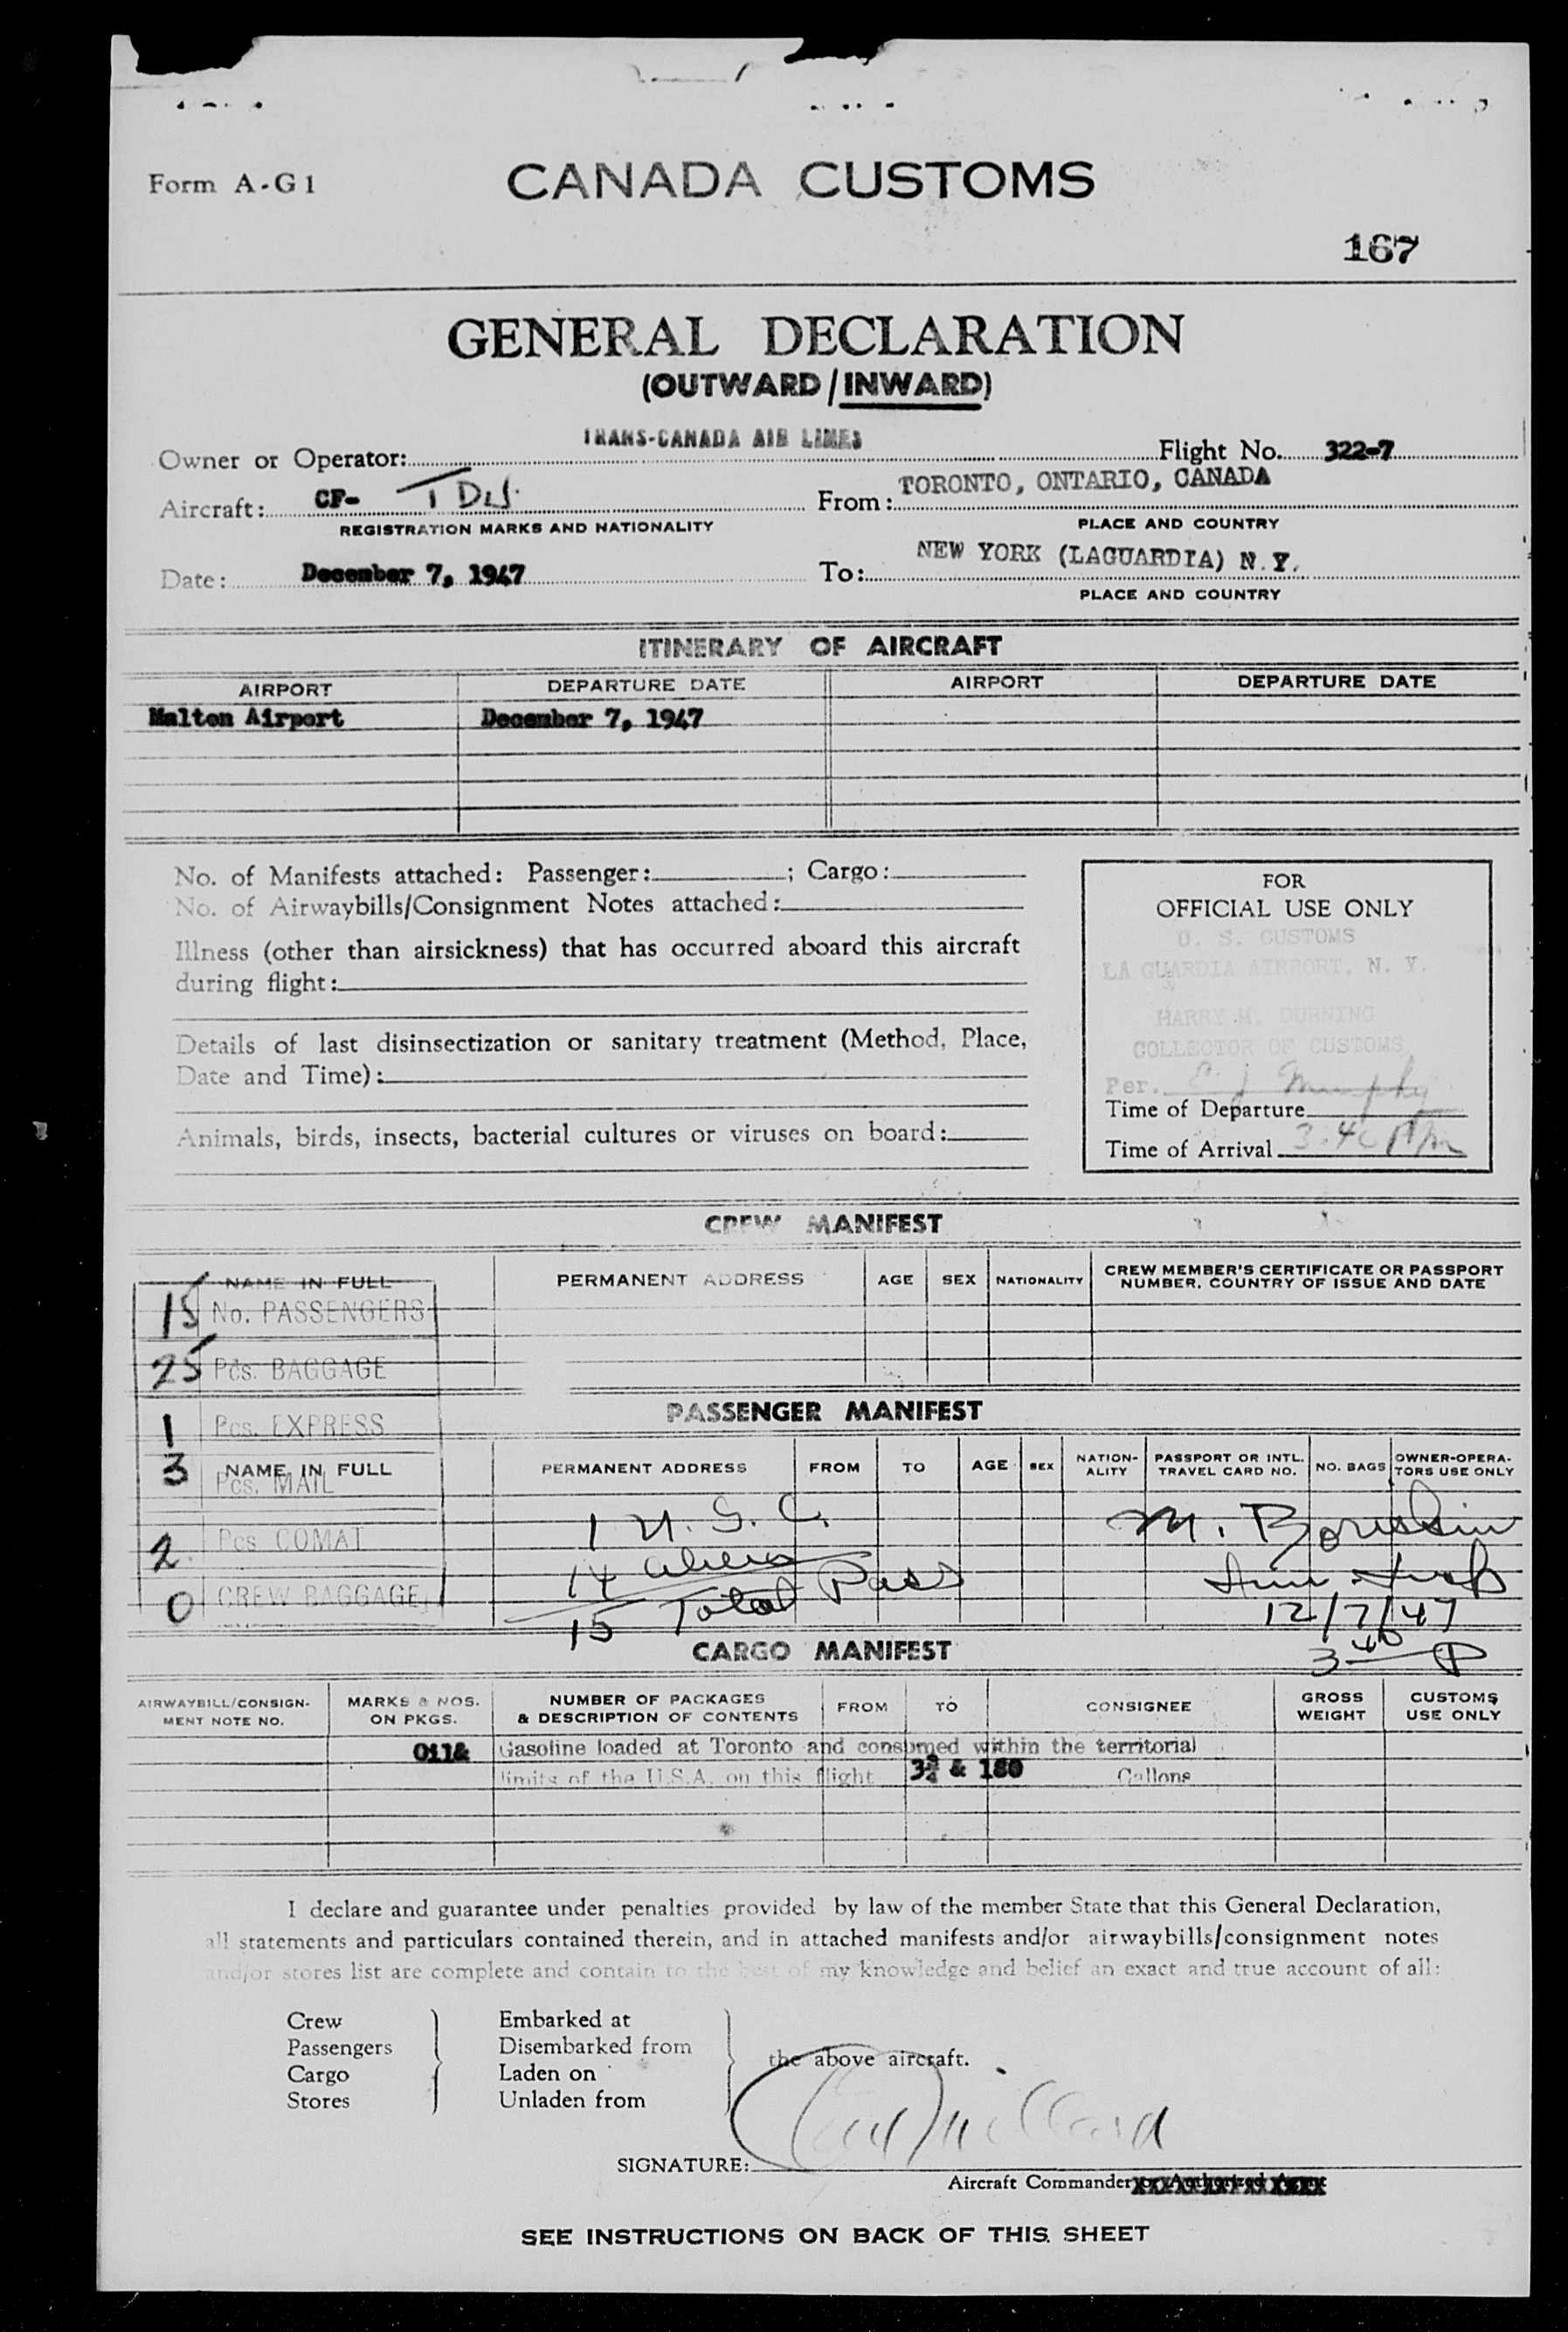 Form A-G1
CANADA CUSTOMS
167
GENERAL DECLARATION
(OUTWARD/INWARD)
Owner or Operator: TRANS-CANADA AIR LINES Flight No. 322-7
Aircraft: CF- From: TORONTO, ONTARIO, CANADA
REGISTRATION MARKS AND NATIONALITY PLACE AND COUNTRY
Date: December 7, 1947 To: NEW YORK (LAGUARDIA) N.Y.
PLACE AND COUNTRY
ITINERARY OF AIRCRAFT
AIRPORT DEPARTURE DATE AIRPORT DEPARTURE DATE
Malton Airport December 7, 1947
No. of Manifests attached: Passenger: ; Cargo:
No. of Airwaybills/Consignment Notes attached:
Illness (other than airsickness) that has occurred aboard this aircraft
during flight:
Details of last disinsectization or sanitary treatment (Method, Place,
Date and Time):
Animals, birds, insects, bacterial cultures or viruses on board:
FOR
OFFICIAL USE ONLY
U. S. CUSTOMS
LA GUARDIA AIRPORT, N. Y.
HARRY M. DURNING
COLLECTOR OF CUSTOMS
Per. E. J. Murphy
Time of Departure
Time of Arrival 3.40 PM
CREW MANIFEST
NAME IN FULL PERMANENT ADDRESS AGE SEX NATIONALITY CREW MEMBER'S CERTIFICATE OR PASSPORT
NUMBER, COUNTRY OF ISSUE AND DATE
15 No. PASSENGERS
25 Pcs. BAGGAGE
PASSENGER MANIFEST
1 Pcs. EXPRESS
NAME IN FULL PERMANENT ADDRESS FROM TO AGE SEX NATION-
ALITY PASSPORT OR INTL.
TRAVEL CARD NO. NO. BAGS OWNER-OPERA-
TORS USE ONLY
3 Pcs. MAIL
1 U.S.C.
2 Pcs COMAT
14 Aliens
0 CREW BAGGAGE
15 Total Pass
12/7/47
3 40 P
CARGO MANIFEST
AIRWAYBILL/CONSIGN-
MENT NOTE NO. MARKS & NOS.
ON PKGS. NUMBER OF PACKAGES
& DESCRIPTION OF CONTENTS FROM TO CONSIGNEE GROSS
WEIGHT CUSTOMS
USE ONLY
Oil& Gasoline loaded at Toronto and consumed within the territorial
limits of the U.S.A. on this flight 3¾ & 180 Gallons
I declare and guarantee under penalties provided by law of the member State that this General Declaration,
all statements and particulars contained therein, and in attached manifests and/or airwaybills/consignment notes
and/or stores list are complete and contain to the best of my knowledge and belief an exact and true account of all:
Crew Embarked at
Passengers Disembarked from
Cargo Laden on
Stores Unladen from
the above aircraft.
SIGNATURE:
Aircraft Commander or Authorized Agent
SEE INSTRUCTIONS ON BACK OF THIS SHEET